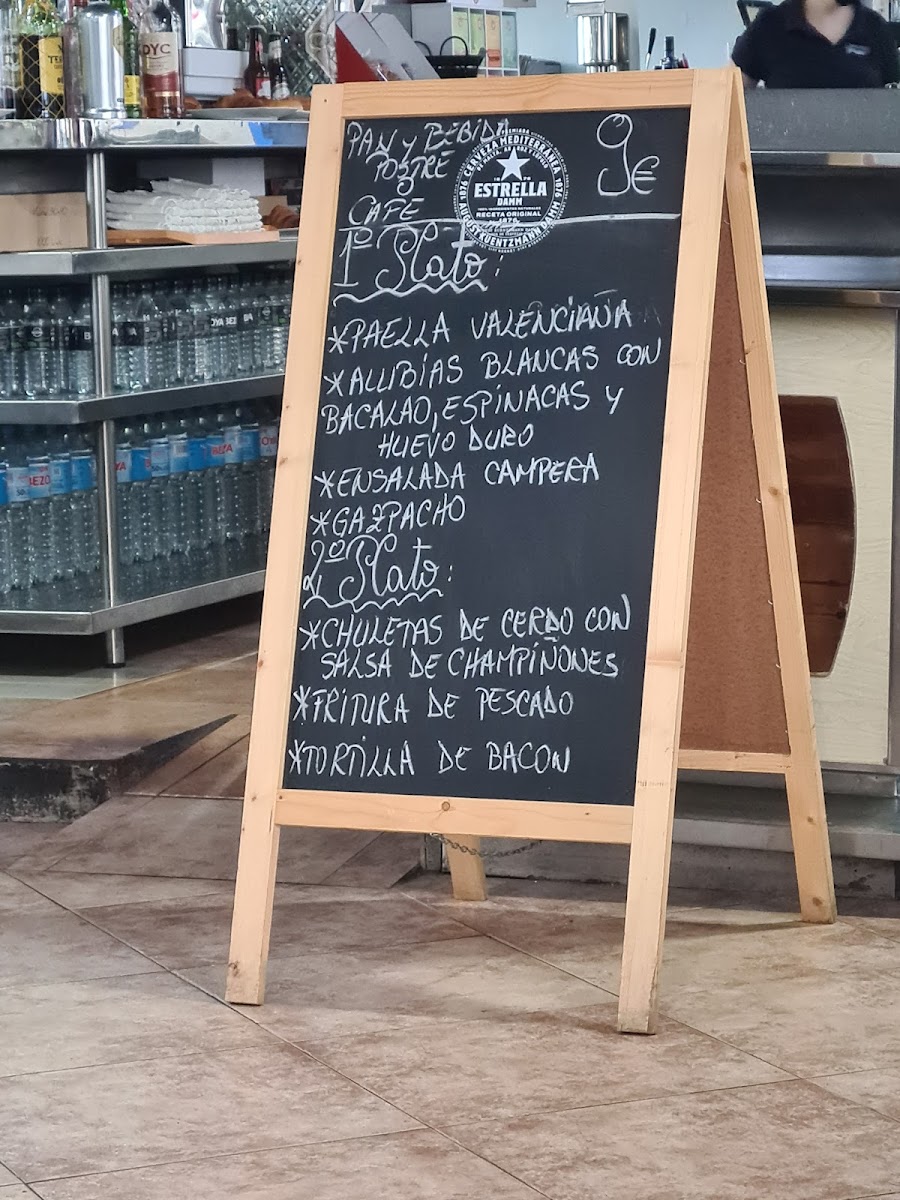 PAN y BEBIDA
POSTRE
ó
CAFE
9€
CERVEZA MEDITERRÁNEA
1876
1876
ESTRELLA
DAMM
RECETA ORIGINAL
1876
AUGUST KUENTZMANN DAMM
1º Plato:
*PAELLA VALENCIAÑA
*ALUBIAS BLANCAS CON
BACALAO, ESPINACAS Y
HUEVO DURO
*ENSALADA CAMPERA
*GAZPACHO
2º Plato:
*CHULETAS DE CERDO CON
SALSA DE CHAMPIÑONES
*FRITURA DE PESCADO
*TORTILLA DE BACON
DYC